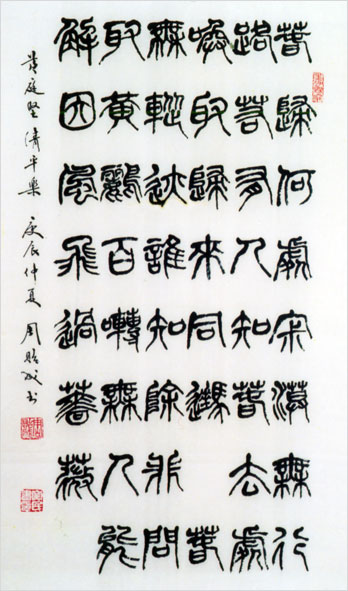 春歸何處宋漠無行
路若有人知春去處
喚取歸來同住春
無蹤迹誰知除非問
取黃鸝百囀無人能
解因風飛過薔薇
黃庭堅清平樂 庚辰仲夏 周書